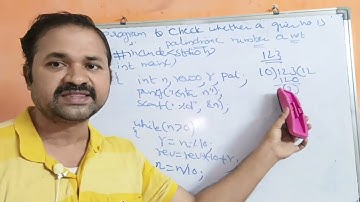 program to check whether a given no is
palindrome number or not
#include<stdio.h>
int main()
{ int n, rev=0, r, pal;
printf("enter n");
scanf("%d", &n);
while(n>0)
r=n%10;
rev=rev*10+r;
n=n/10;
123
10)123(12
120
3